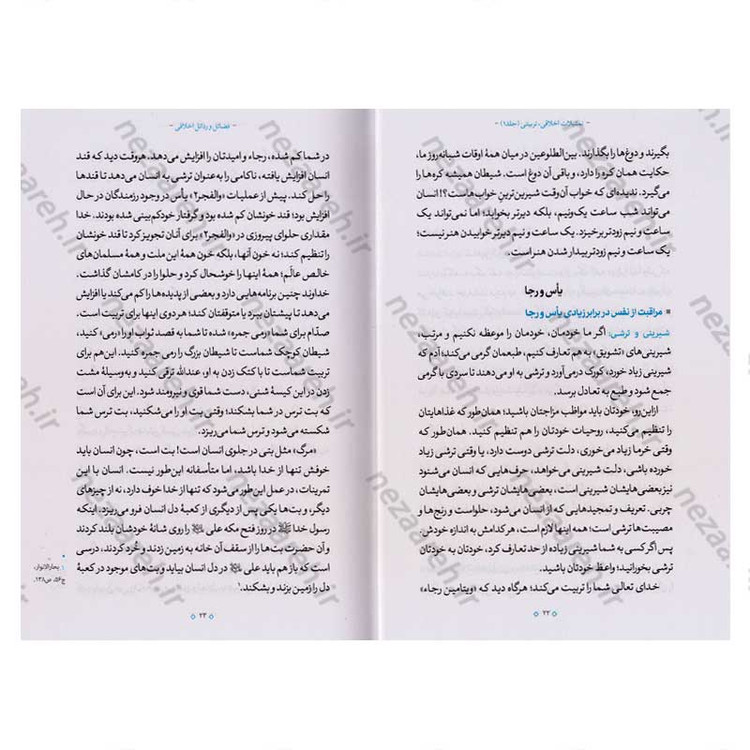 - تمثیلات اخلاقی، تربیتی (جلد۱) -
بگیرند و دوغ‌ها را بگذارند. بین‌الطلوعین در میان همهٔ اوقات شبانه‌روز ما،
حکایت همان کره را دارد، و باقی آن دوغ است. شیطان همیشه کره‌ها را
می‌گیرد. ندیده‌ای که خواب آن‌وقت شیرین‌ترینِ خواب‌هاست؟! انسان
می‌تواند شب ساعت یک‌ونیم، بلکه دیرتر بخوابد؛ اما نمی‌تواند یک
ساعت و نیم زودتر برخیزد. یک ساعت و نیم دیرتر خوابیدن هنر نیست؛
یک ساعت و نیم زودتر بیدار شدن هنر است.
یأس و رجا
مراقبت از نفس در برابر زیادی یأس و رجا
شیرینی و ترشی: اگر ما خودمان، خودمان را موعظه نکنیم و مرتب،
شیرینی‌های «تشویق» به هم تعارف کنیم، طبعمان گرمی می‌کند؛ آدم که
شیرینی زیاد خورد، کورک درمی‌آورد و ترشی به او می‌دهند تا سردی با گرمی
جمع شود و طبع به تعادل برسد.
ازاین‌رو، خودتان باید مواظب مزاجتان باشید؛ همان‌طور که غذاهایتان
را تنظیم می‌کنید، روحیات خودتان را هم تنظیم کنید. همان‌طور که
وقتی خرما زیاد می‌خوری، دلت ترشی دوست دارد، یا وقتی ترشی زیاد
خورده باشی، دلت شیرینی می‌خواهد، حرف‌هایی که انسان می‌شنود
نیز بعضی‌هایشان شیرینی است، بعضی‌هایشان ترشی و بعضی‌هایشان
چربی. تعریف و تمجیدهایی که از انسان می‌شود، حلواست و رنج‌ها و
مصیبت‌ها ترشی است؛ همه اینها لازم است، هر کدامش به اندازه خودش.
پس اگر کسی به شما شیرینی زیاده از حد تعارف کرد، خودتان به خودتان
ترشی بخورانید؛ واعظ خودتان باشید.
خدای تعالی شما را تربیت می‌کند؛ هرگاه دید که «ویتامین رجاء»
۲۲
- فضائل و رذائل اخلاقی -
در شما کم شده، رجاء و امیدتان را افزایش می‌دهد. هروقت دید که قند
انسان افزایش یافته، ناکامی را به‌عنوان ترشی به انسان می‌دهد تا قندها
را حل کند. پیش از عملیات «والفجر۲» یأس در وجود رزمندگان در حال
افزایش بود؛ قند خونشان کم شده بود و گرفتار خودکم‌بینی شده بودند. خدا
مقداری حلوای پیروزی در «والفجر۲» برای آنان تجویز کرد تا قند خونشان
را تنظیم کند؛ نه خون آنها، بلکه خون همهٔ این ملت و همهٔ مسلمان‌های
خالص عالَم؛ همهٔ اینها را خوشحال کرد و حلوا در کامشان گذاشت.
خداوند چنین برنامه‌هایی دارد و بعضی از پدیده‌ها را کم می‌کند یا افزایش
می‌دهد تا پیشتان ببرد یا متوقفتان کند؛ هر دوی اینها برای تربیت است.
صدّام برای شما «رمی جمره» شده تا شما به قصد ثواب او را «رمی» کنید،
شیطان کوچک شماست تا شیطان بزرگ را رمی جمره کنید. این‌هم برای
تربیت شماست تا با کتک زدن به او، عندالله ترقی کنید و به‌وسیلهٔ مشت
زدن در این کیسهٔ شنی، دست شما قوی و نیرومند شود. این برای آن است
که بت ترس در شما بشکند؛ وقتی بت او را می‌شکنید، بت ترس شما
شکسته می‌شود و ترس شما می‌ریزد.
«مرگ» مثل بتی در جلوی انسان است! بت است، چون انسان باید
خوفش تنها از خدا باشد، اما متأسفانه این‌طور نیست. انسان با این
تمرینات، در عمل این‌طور می‌شود که تنها از خدا خوف دارد، نه از چیزهای
دیگر، و بت‌ها یکی پس از دیگری از کعبهٔ دل انسان فرو می‌ریزد. اینکه
رسول خدا ﷺ در روز فتح مکه علی را روی شانهٔ خودشان بلند کردند
و آن حضرت بت‌ها را از سقف آن خانه به زمین زدند و خُرد کردند، درسی
است که باز هم باید علی در دل انسان بیاید و بت‌های موجود در کعبهٔ
دل را زمین بزند و بشکند.۱
۱. بحارالانوار،
ج۵۶، ص۱۳۸.
۲۳
nezaareh.ir